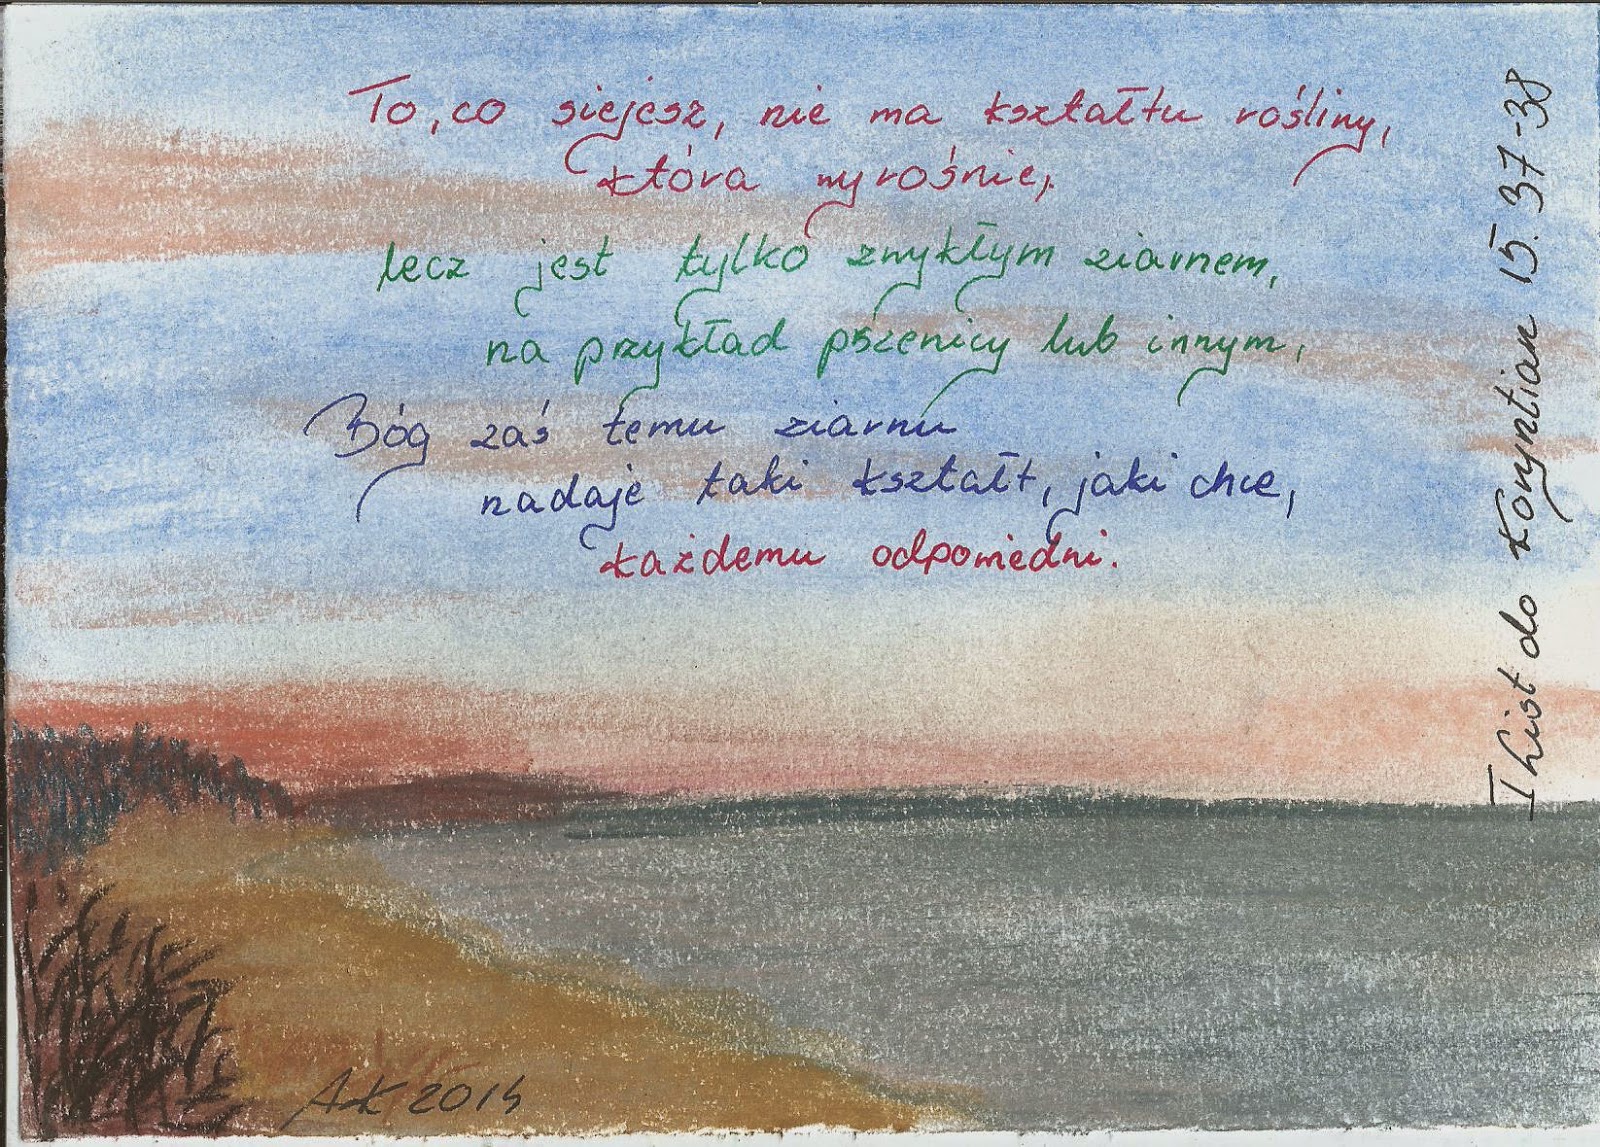 To, co siejesz, nie ma kształtu rośliny,
która wyrośnie,
lecz jest tylko zwykłym ziarnem,
na przykład pszenicy lub innym,
Bóg zaś temu ziarnu
nadaje taki kształt, jaki chce,
każdemu odpowiedni.
I List do Koryntian 15. 37-38
AK 2014